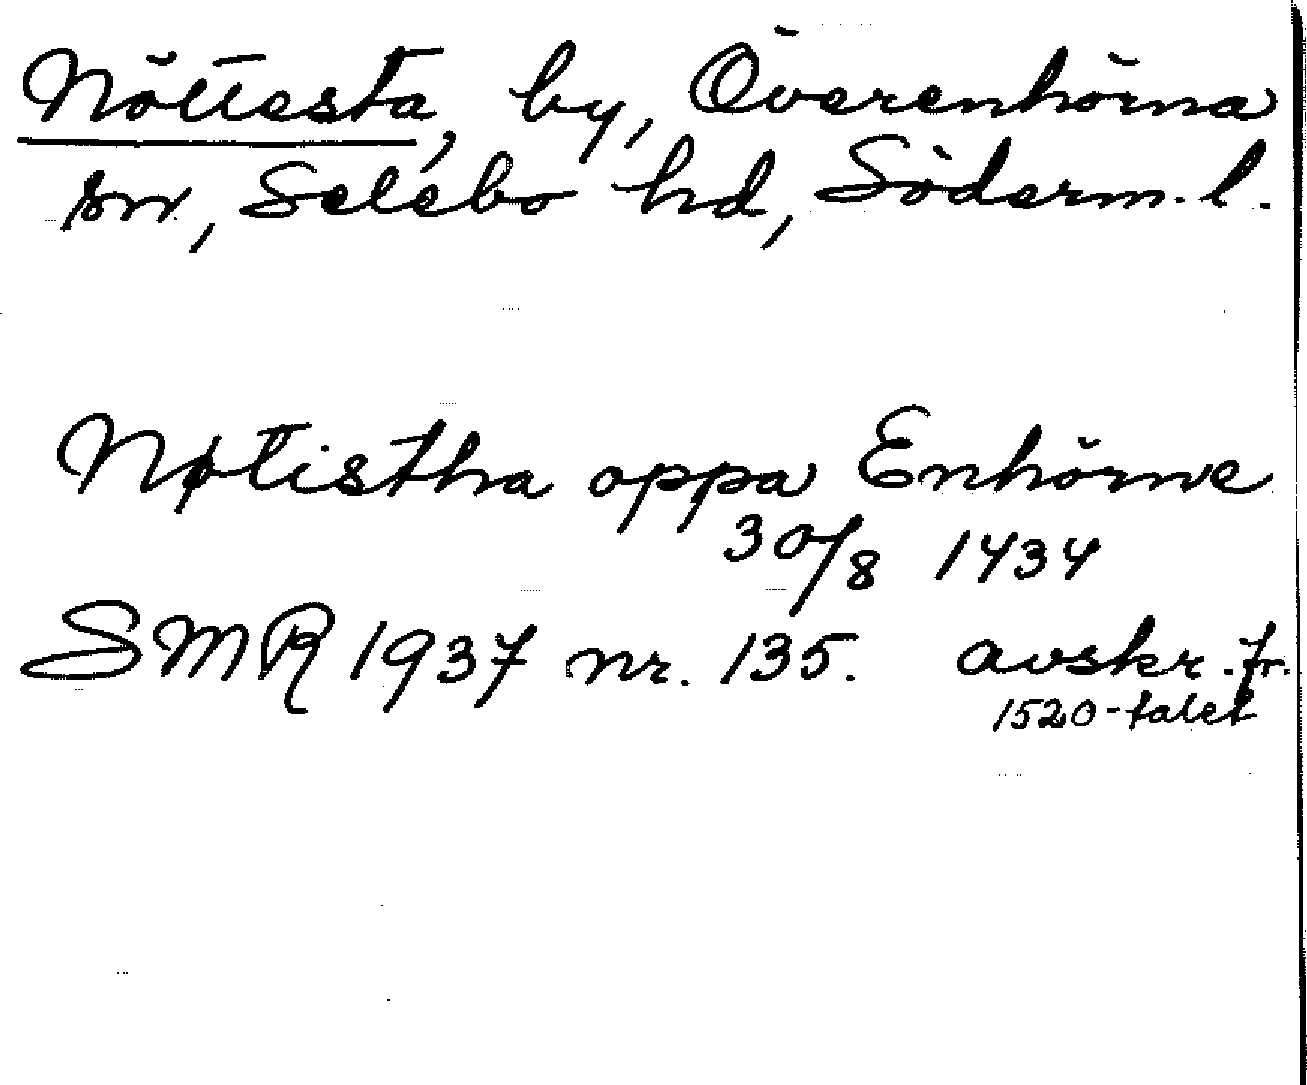 Nöttesta, by, Överenhörna
sn, Selebo hd, Söderm. l.
Nøtistha oppa Enhörne
30/8 1434
SMR 1937 nr. 135. avskr. fr.
1520-talet